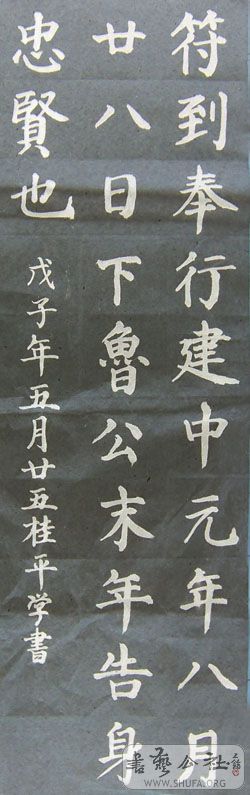 符到奉行建中元年八月
廿八日下魯公末年告身
忠賢也
戊子年五月廿五桂平学書
書藝公社
WWW.SHUFA.ORG